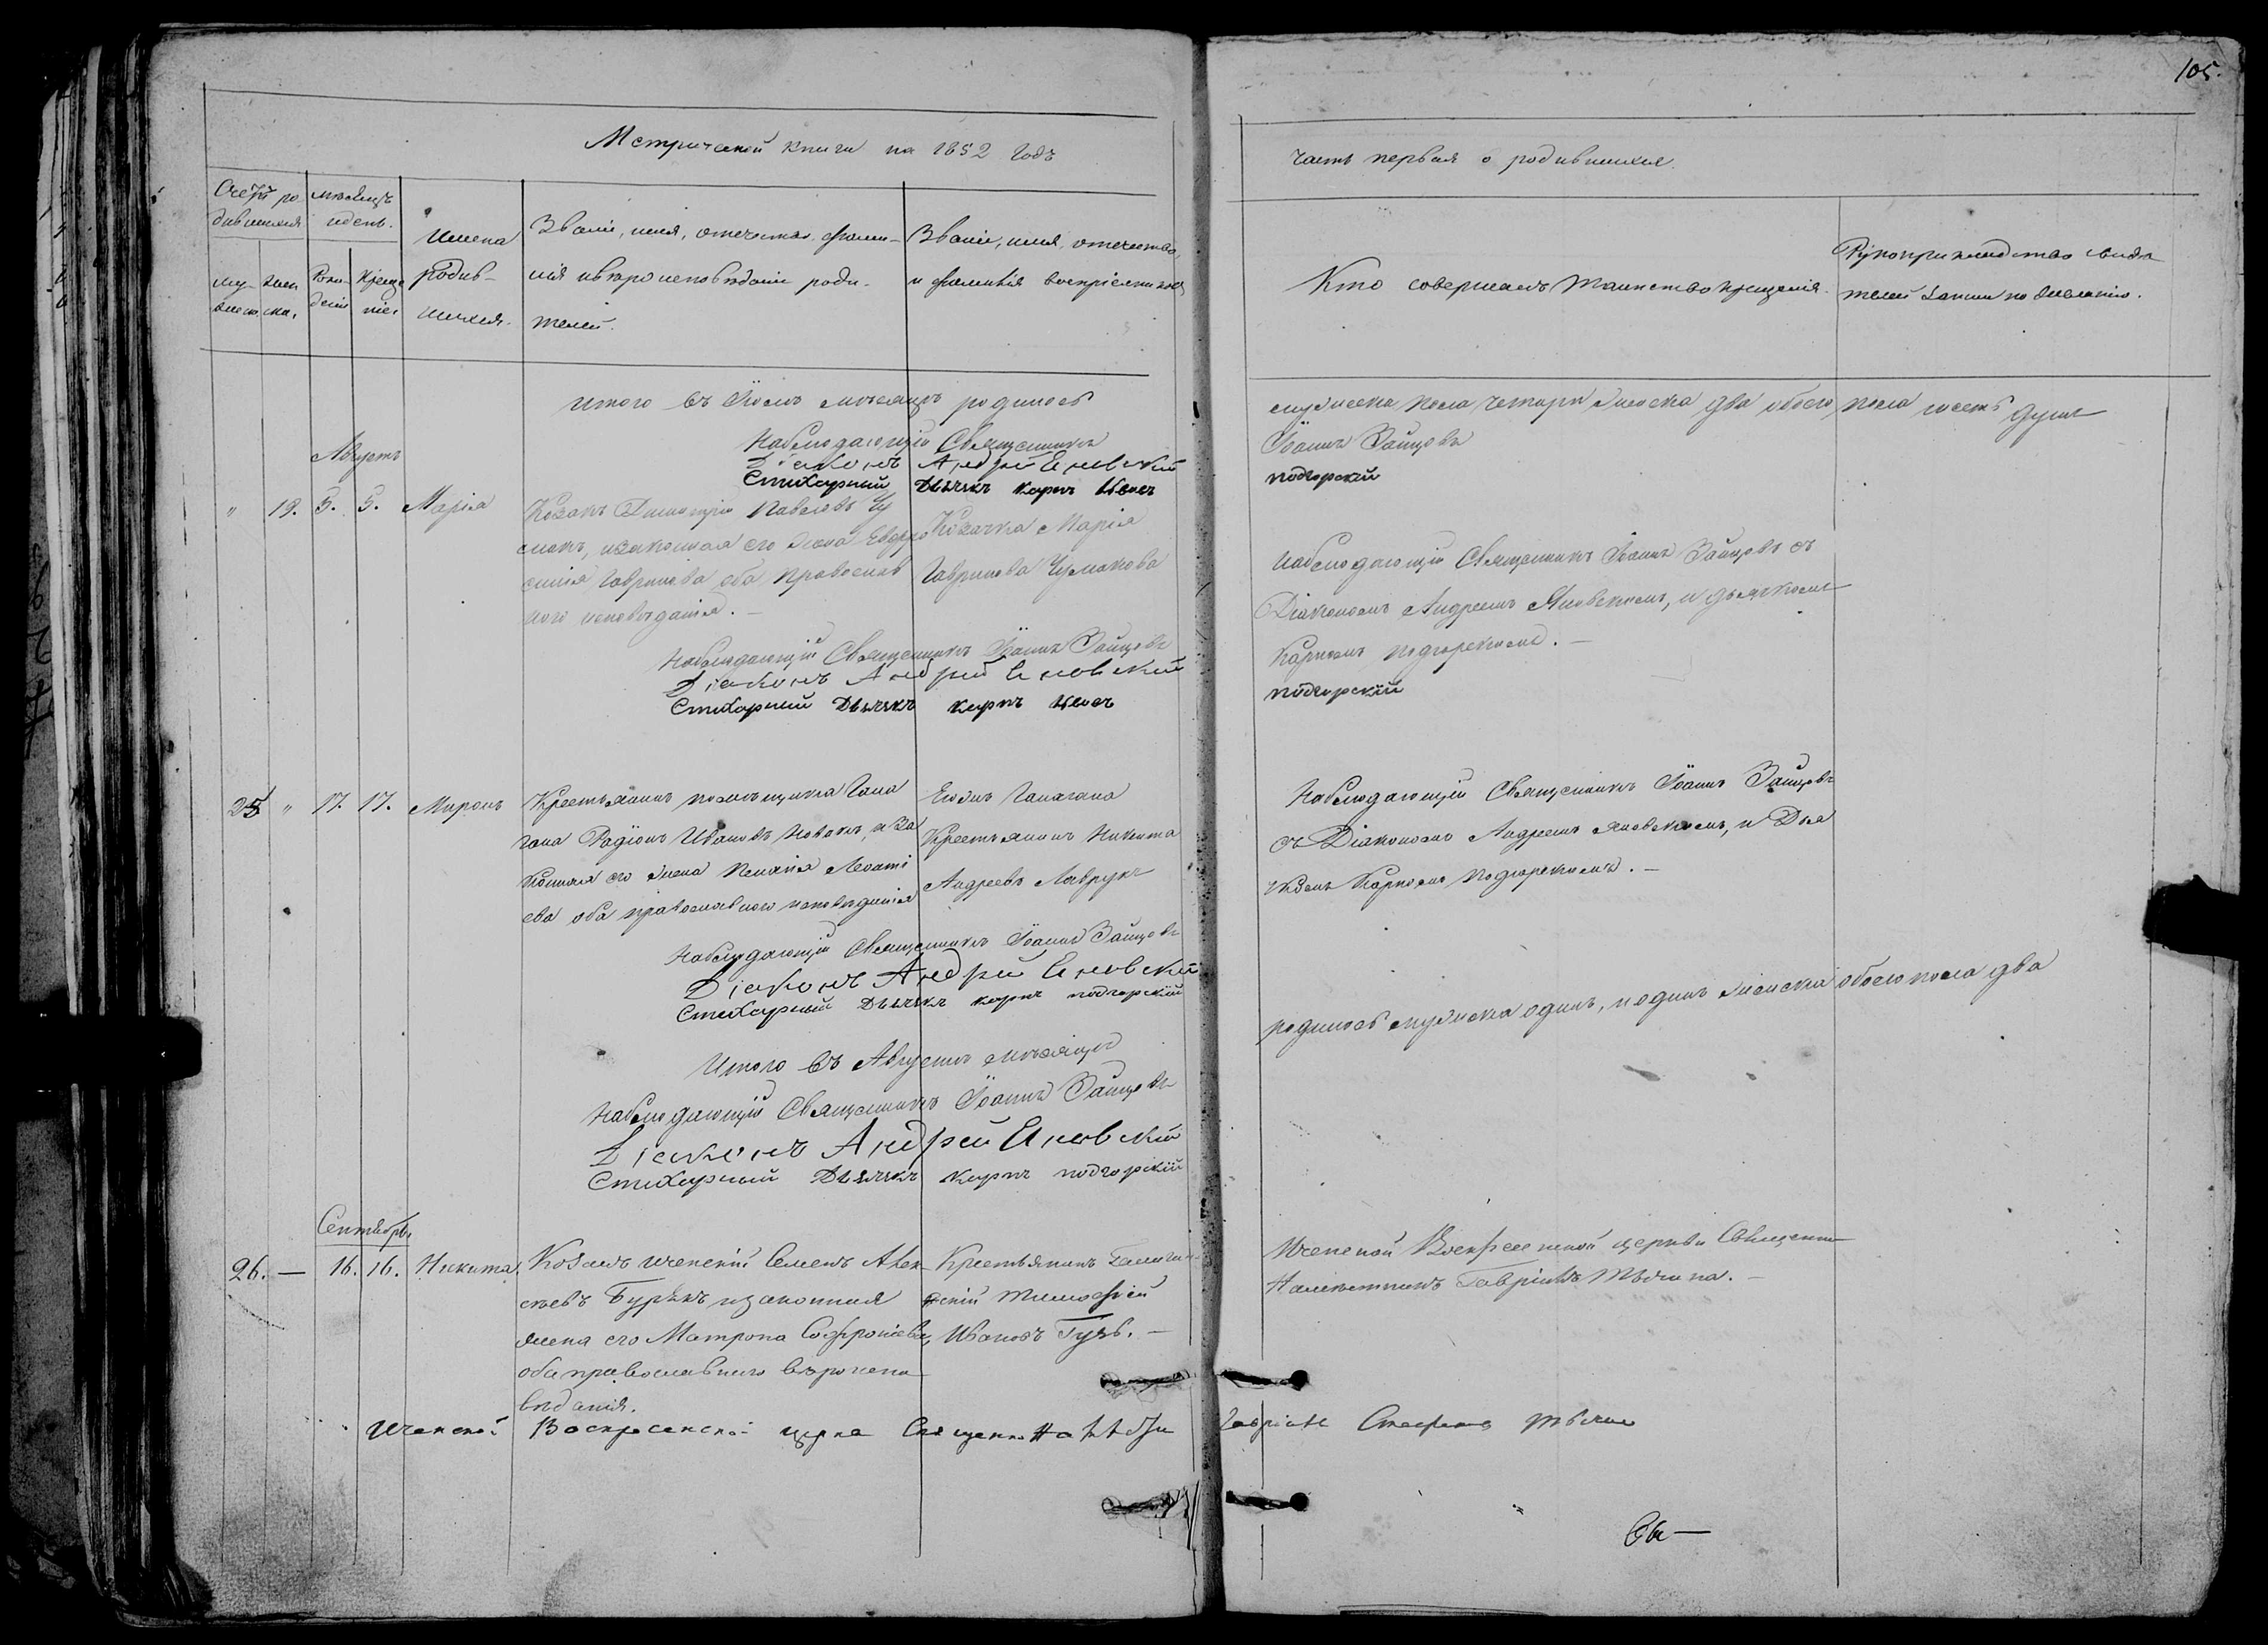 105.
Метрической книги на 1852 годъ
часть первая о родившихся.
Счетъ ро
дившихся
мѣсяцъ
и день.
Имена
родив-
шихся.
Званіе, имя, отечество, фами-
лія и вѣроисповѣданіе роди-
телей.
Званіе, имя, отечество,
и фамилія воспріемниковъ
Кто совершалъ таинство крещенія.
Рукоприкладство свидѣ
телей записи по желанію.
му-
жеск.
жен
ска.
Рож-
денія
Креще
нія
итого въ Іюлѣ мѣсяцѣ родилось
мужеска пола четыри женска два обоего пола шесть душъ
Наблюдающій Священникъ
Іоаннъ Зайцовъ
Діаконъ Андрей Яновский
Стихарный Дьячкъ карпъ
подгорскій
Августъ
" 19. 5. 5. Марія
Козакъ Димитрій Павловъ Чу
макъ, изаконная его жена Евфро
синія Гаврилова оба православ
ного исповѣданія. —
Козачка Марія
Гаврилова Чумакова
Наблюдающій Священникъ Іоаннъ Зайцовъ съ
Діакономъ Андреемъ Яновскимъ, и дьячкомъ
Карпомъ подгорскимъ. —
Наблюдающій Священникъ Іоаннъ Зайцовъ
Діаконъ Андрей Яновский
Стихарный Дьячкъ карпъ
подгорскій
25 " 17. 17. Миронъ
Крестьянинъ помѣщика Гала
гана Радіонъ Ивановъ Новакъ, и за
конная его жена Леонті
ева оба православного исповѣданія
Галагана
Крестьянинъ Никита
Андреевъ Лаврукъ
Наблюдающій Священникъ Іоаннъ Зайцовъ
съ Діакономъ Андреемъ Яновскимъ, и Дья
чкомъ Карпомъ Подгорскимъ. —
Наблюдающій Священникъ Іоаннъ Зайцовъ
Діаконъ Андрей Яновский
Стихарный Дьячкъ карпъ подгорскій
Итого въ Августѣ мѣсяцѣ
родилось мужеска одинъ, и одинъ женска обоего пола два
Наблюдающій Священникъ Іоаннъ Зайцовъ
Діаконъ Андрей Яновский
Стихарный Дьячкъ карпъ подгорскій
Сентябрь
26. — 16. 16. Никита
Козакъ иченскій Семенъ Алек
сѣевъ Бурякъ изаконная
жена его Матрона Софроніева,
оба православнаго вѣроиспо
вѣданія.
Крестьянинъ
скій Тимофѣй
Ивановъ Гузь. —
Иченской Воскресенской церкви Священник
Намѣстникъ Гавріилъ —
Иченской Воскресенской